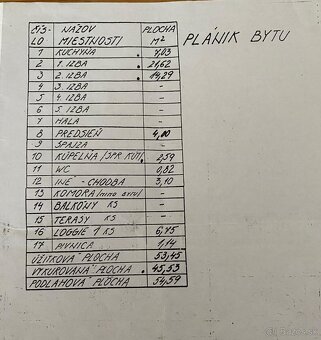 ČÍS- NÁZOV PLOCHA
LO MIESTNOSTI M²
PLÁNIK BYTU
1 KUCHYŇA 7,03
2 1. IZBA 21,62
3 2. IZBA 14,29
4 3. IZBA -
5 4. IZBA -
6 5. IZBA -
7 HALA -
8 PREDSIEŇ 4,00
9 ŠPAJZA -
10 KÚPELŇA/SPR. KÚT/ 2,59
11 WC 0,82
12 INÉ - CHODBA 3,10
13 KOMORA/mimo bytu/ -
14 BALKÓNY KS -
15 TERASY KS -
16 LOGGIE 1 KS 6,45
17 PIVNICA 1,14
ÚŽITKOVÁ PLOCHA 53,45
VYKUROVANÁ PLOCHA 45,53
PODLAHOVÁ PLOCHA 54,59
bazos.sk